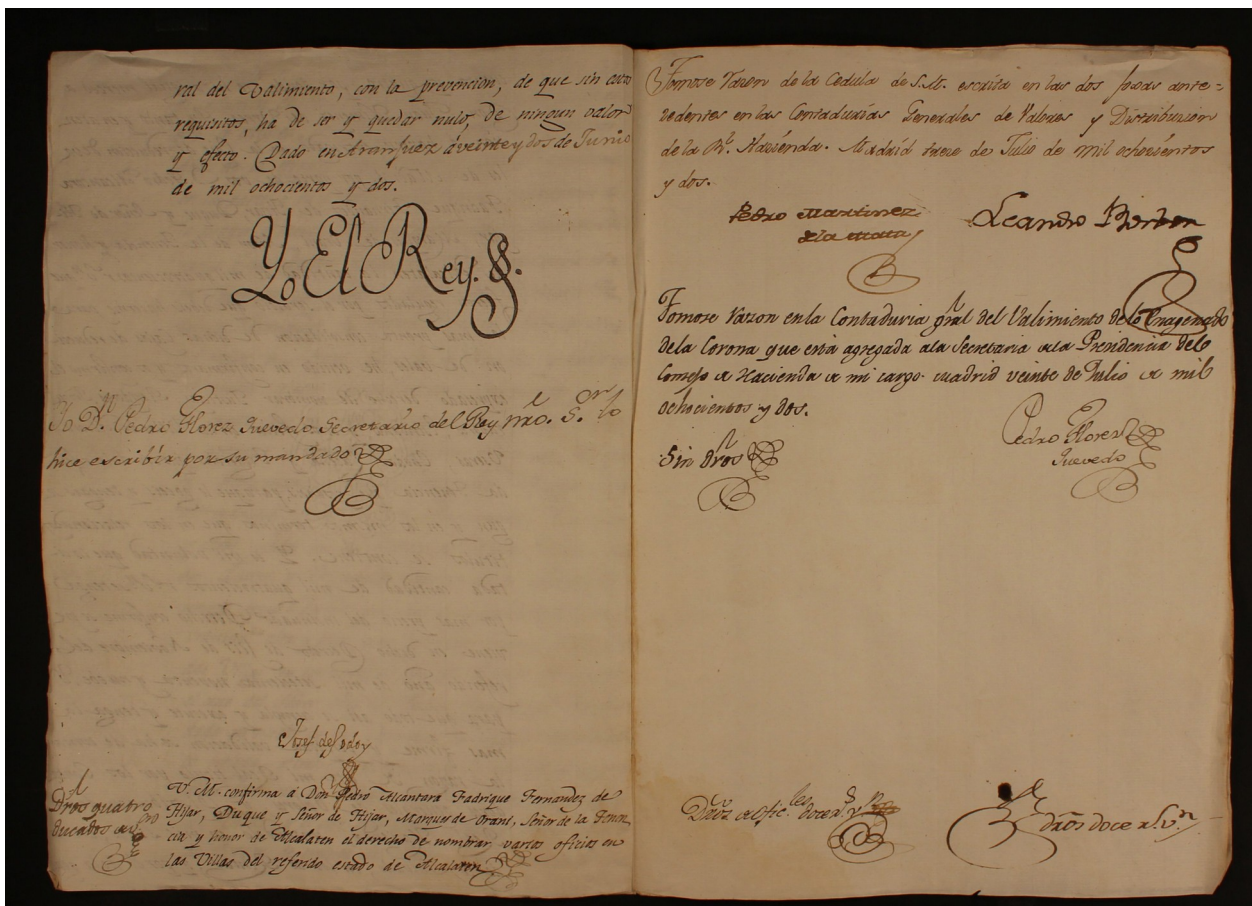 ral del Valimiento, con la prevencion, de que sin estos
requisitos, ha de ser y quedar nulo, de ningun valor
y efecto. Dado en Aranjuez à veinte y dos de Junio
de mil ochocientos y dos.
Yo El Rey.
Yo Dn. Pedro Florez Quevedo Secretario del Rey nro. Sor. lo
hice escribir por su mandado
Josef de Godoy
Dros quatro
ducados
V. M. confirma à Don Pedro Alcantara Fadrique Fernandez de
Hijar, Duque y Señor de Hijar, Marques de Orani, Señor de la Tenen
cia y honor de Alcalaten el derecho de nombrar varios oficios en
las Villas del referido estado de Alcalaten
Tomose razon de la Cedula de S.M. escrita en las dos fojas ante=
cedentes en las Contadurías Generales de Valores y Distribucion
de la Rl. Hacienda. Madrid trece de Julio de mil ochocientos
y dos.
Pedro Martinez
de la Mata
Leandro Borbon
Tomose razon en la Contaduria gral del Valimiento de lo Enagenado
dela Corona que está agregada ala Secretaria dela Presidencia del
Consejo de Hacienda de mi cargo. Madrid veinte de Julio de mil
ochocientos y dos.
Sin dros
Pedro Florez
Quevedo
Dros al Ofic.les doce rs. vn
dros doce rs. vn.